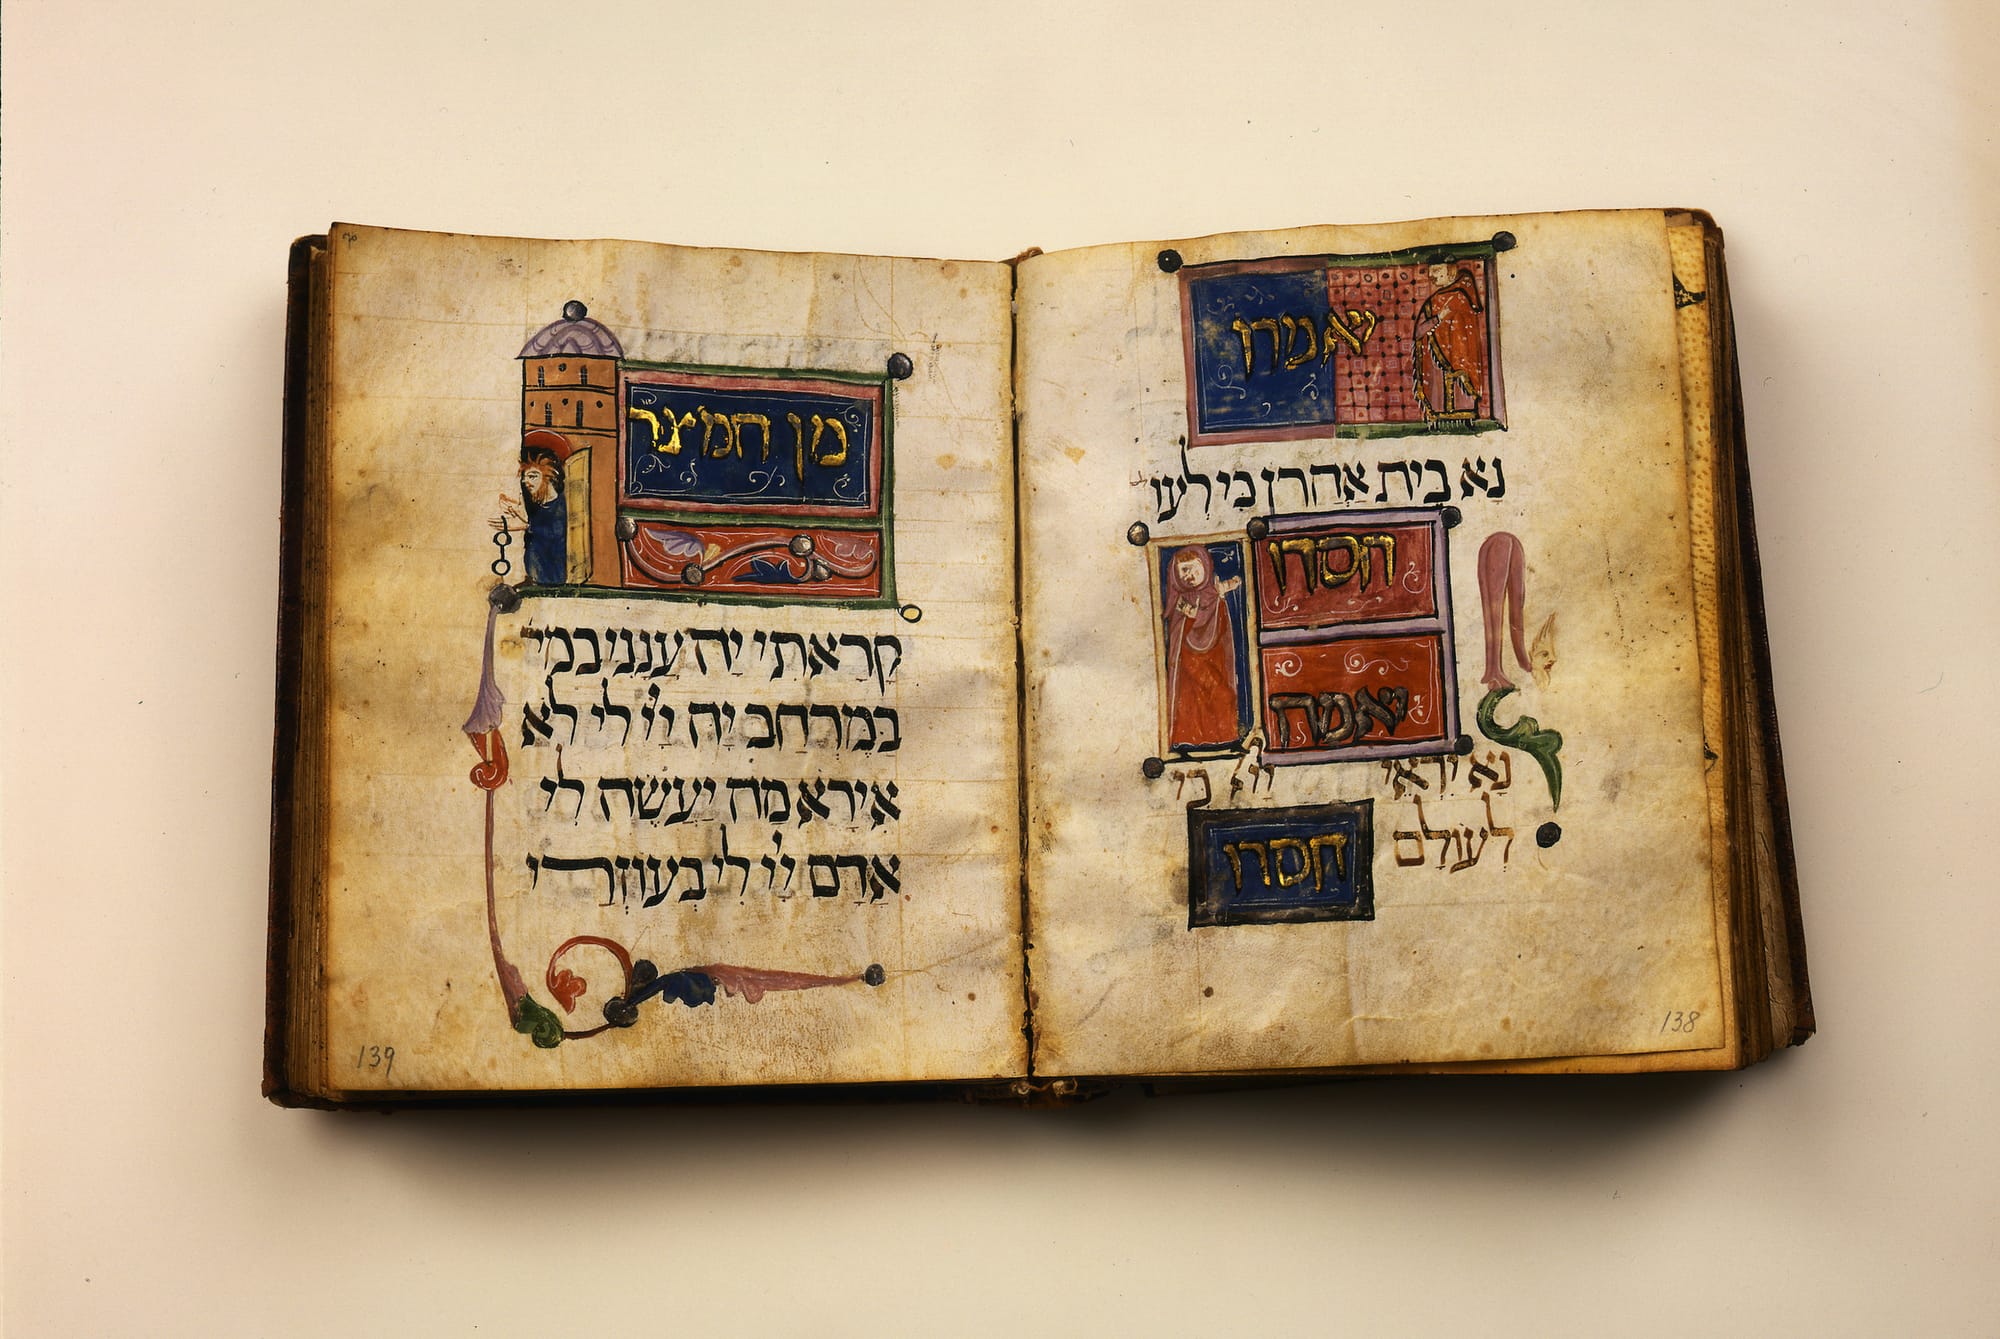 יאמרו
נא בית אהרן כי לעו
חסדו
יאמרו
נא יראי ייי כי
לעולם
חסדו
138
מן המצר
קראתי יה ענני במ
במרחב יה ייי לי לא
אירא מה יעשה לי
אדם ייי לי בעוזרי
139